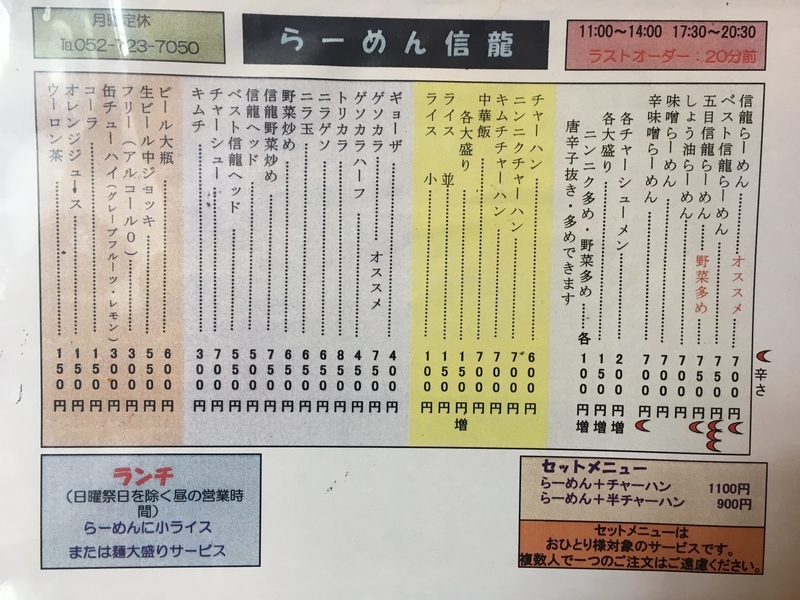 月曜定休
℡052-723-7050
らーめん信龍
11:00～14:00 17:30～20:30
ラストオーダー：20分前
辛さ
信龍らーめん オススメ 700円
ベスト信龍らーめん 750円
五目信龍らーめん 野菜多め 750円
しょう油らーめん 700円
味噌らーめん 700円
辛味噌らーめん 700円
各チャーシューメン 200円増
各大盛り 150円増
ニンニク多め・野菜多め 各100円増
唐辛子抜き・多めできます
チャーハン 600円
ニンニクチャーハン 700円
キムチチャーハン 700円
中華飯 700円
各大盛り 150円増
ライス 並 150円
ライス 小 100円
ギョーザ 400円
ゲソカラ オススメ 750円
ゲソカラハーフ 450円
トリカラ 850円
ニラゲソ 650円
ニラ玉 650円
野菜炒め 650円
信龍野菜炒め 750円
信龍ヘッド 500円
ベスト信龍ヘッド 550円
チャーシュー 700円
キムチ 300円
ビール大瓶 600円
生ビール中ジョッキ 550円
フリー（アルコール0） 300円
缶チューハイ（グレープフルーツ・レモン） 300円
コーラ 150円
オレンジジュース 150円
ウーロン茶 150円
ランチ
（日曜祭日を除く昼の営業時
間）
らーめんに小ライス
または麺大盛りサービス
セットメニュー
らーめん＋チャーハン 1100円
らーめん＋半チャーハン 900円
セットメニューは
おひとり様対象のサービスです。
複数人で一つのご注文はご遠慮ください。